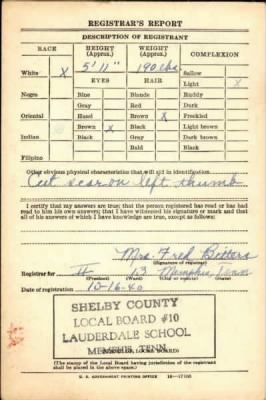 REGISTRAR'S REPORT
DESCRIPTION OF REGISTRANT
RACE HEIGHT (Approx.) WEIGHT (Approx.) COMPLEXION
5' 11" 190 lbs. Sallow
White X EYES HAIR Light X
Negro Blue Blonde Ruddy
Gray Red Dark
Oriental Hazel Brown X Freckled
Brown X Black Light brown
Indian Black Gray Dark brown
Bald Black
Filipino
Other obvious physical characteristic that will aid in identification
Cut scar on left thumb
I certify that my answers are true; that the person registered has read or has had
read to him his own answers; that I have witnessed his signature or mark and that
all of his answers of which I have knowledge are true, except as follows:
Mrs. Fred
(Signature of registrar)
Registrar for II 13 Memphis, Tenn
(Precinct) (Ward) (City or county) (State)
Date of registration 10-16-40
SHELBY COUNTY
LOCAL BOARD #10
LAUDERDALE SCHOOL
MEMPHIS, TENN.
(STAMP OF LOCAL BOARD)
(The stamp of the Local Board having jurisdiction of the registrant
shall be placed in the above space.)
U. S. GOVERNMENT PRINTING OFFICE